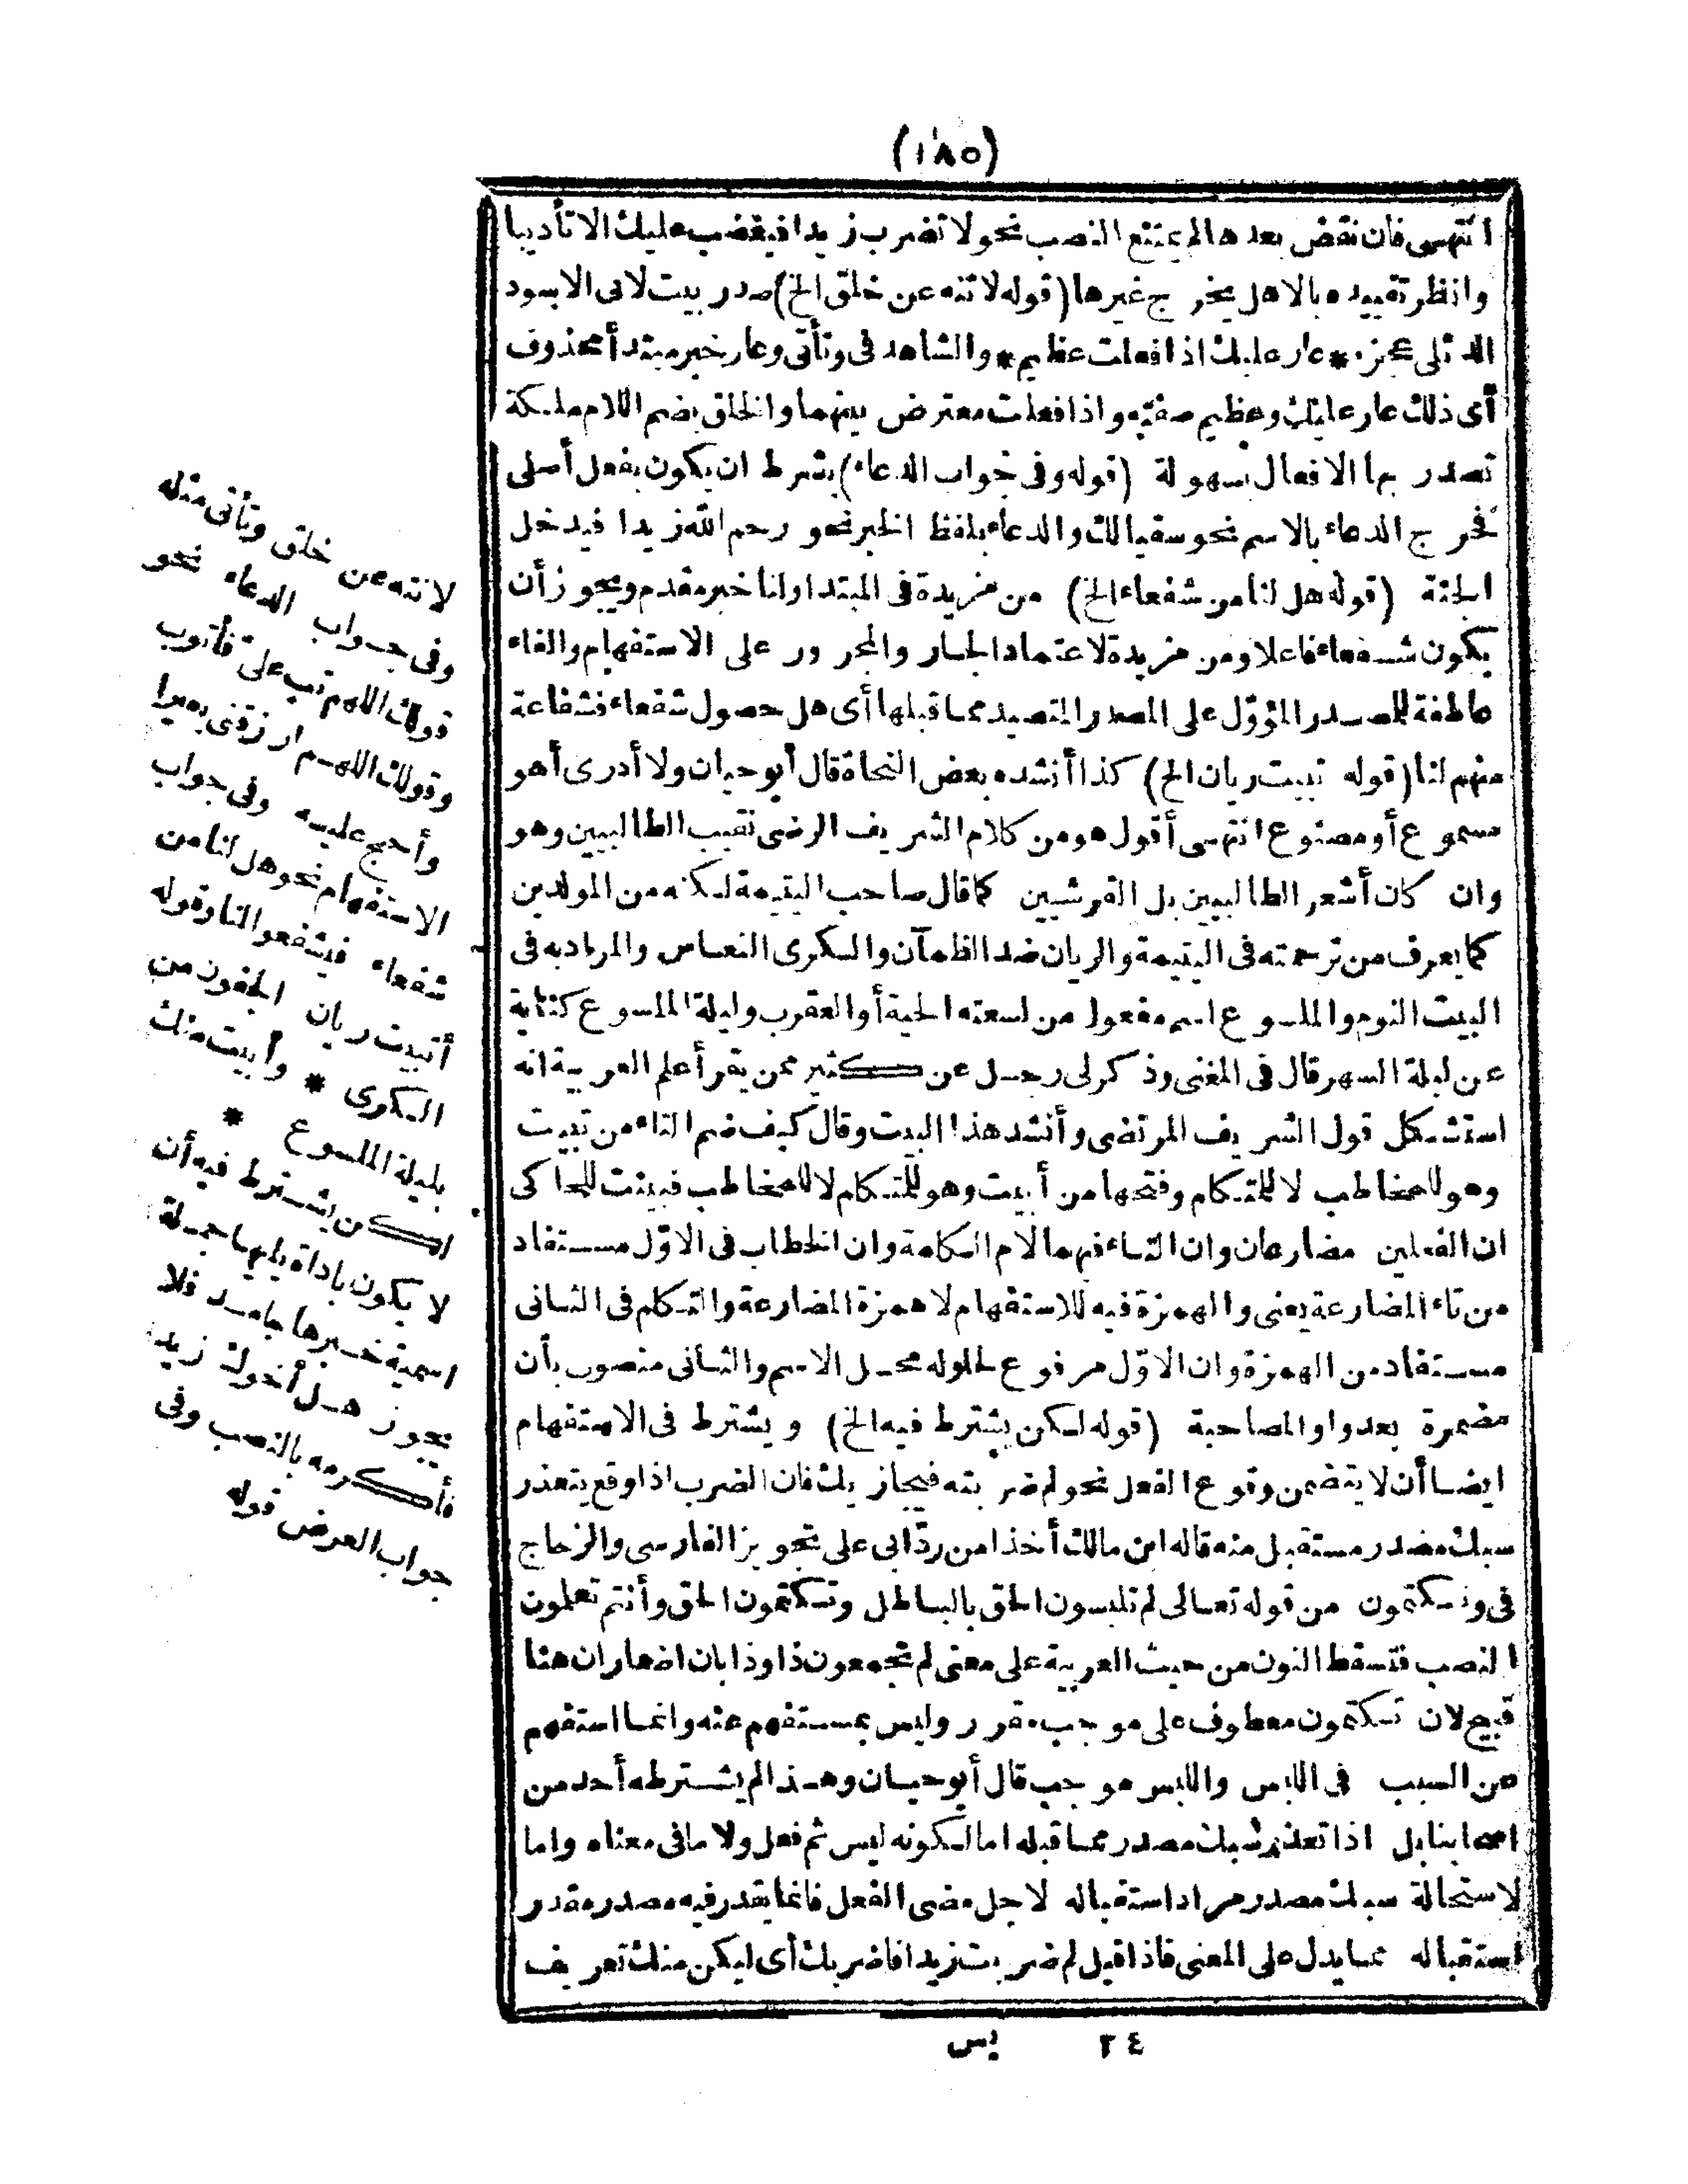 (١٨٥)
انتهى فان نقض بعدها لم يمتنع النصب نحو لا تضرب زيدا فيغضب عليك الا تأديبا
وانظر تقييده بالا هل يخرج غيرها (قوله لا تنه عن خلق الخ) صدر بيت لابى الاسود
الدئلى عجزه * عار عليك اذا فعلت عظيم * والشاهد فى وتأتى وعار خبر مبتدأ محذوف
أى ذلك عار عليك وعظيم صفته واذا فعلت معترض بينهما والخلق بضم اللام ملكة
تصدر بها الافعال بسهولة (قوله وفى جواب الدعاء) بشرط ان يكون بفعل أصلى
فخرج الدعاء بالاسم نحو سقيا لك والدعاء بلفظ الخبر نحو رحم الله زيدا فيدخل
الجنة (قوله هل لنا من شفعاء الخ) من مزيدة فى المبتدا ولنا خبر مقدم ويجوز أن
يكون شفعاء فاعلا ومن مزيدة لاعتماد الجار والمجرور على الاستفهام والفاء
عاطفة للمصدر المؤوّل على المصدر المتصيد مما قبلها أى هل حصول شفعاء فشفاعة
منهم لنا (قوله تبيت ريان الخ) كذا أنشده بعض النحاة قال أبو حيان ولا أدرى أهو
مسموع أو مصنوع انتهى أقول هو من كلام الشريف الرضى نقيب الطالبيين وهو
وان كان أشعر الطالبيين بل القرشيين كما قال صاحب اليتيمة لكنه من المولدين
كما يعرف من ترجمته فى اليتيمة والريان ضد الظمآن والكرى النعاس والمراد به فى
البيت النوم والملسوع اسم مفعول من لسعته الحية أو العقرب وليلة الملسوع كناية
عن ليلة السهر قال فى المغنى وذكر لى رجل عن كثير ممن يقرأ علم العربية انه
استشكل قول الشريف المرتضى وأنشد هذا البيت وقال كيف ضم التاء من تبيت
وهو للمخاطب لا للمتكلم وفتحها من أبيت وهو للمتكلم لا للمخاطب فبينت للحاكى
ان الفعلين مضارعان وان التاء فيهما لام الكلمة وان الخطاب فى الاوّل مستفاد
من تاء المضارعة يعنى والهمزة فيه للاستفهام لا همزة المضارعة والتكلم فى الثانى
مستفاد من الهمزة وان الاوّل مرفوع لحلوله محل الاسم والثانى منصوب بأن
مضمرة بعد واو المصاحبة (قوله لكن يشترط فيه الخ) ويشترط فى الاستفهام
ايضا أن لا يتضمن وقوع الفعل نحو لم ضربته فيجازيك فان الضرب اذا وقع يتعذر
سبك مصدر مستقبل منه قاله ابن مالك أخذا من ردّ ابى على تجويز الفارسى والزجاج
فى وتكتمون من قوله تعالى لم تلبسون الحق بالباطل وتكتمون الحق وأنتم تعلمون
النصب فتسقط النون من حيث العربية على معنى لم تجمعون ذا وذا بان اضمار ان هنا
قبيح لان تكتمون معطوف على موجب مقرر وليس بمستفهم عنه وانما استفهم
عن السبب فى اللبس واللبس موجب قال أبو حيان وهذا لم يشترطه أحد من
اصحابنا بل اذا تعذر سبك مصدر مما قبله اما لكونه ليس ثم فعل ولا ما فى معناه واما
لاستحالة سبك مصدر مراد استقباله لاجل مضى الفعل فانما يقدر فيه مصدر مقدر
استقباله مما يدل على المعنى فاذا قيل لم ضربت زيدا فاضربك أى ليكن منك تعريف
٢٤ يس
لا تنه عن خلق وتأتى مثله
وفى جواب الدعاء نحو
قولك اللهم تب علىّ فأتوب
وقولك اللهم ارزقنى بعيرا
وأحج عليه وفى جواب
الاستفهام نحو هل لنا من
شفعاء فيشفعوا لنا وقوله
أتبيت ريان الجفون من
الكرى * وأبيت منك
بليلة الملسوع *
لكن يشترط فيه أن
لا يكون باداة يليها جملة
اسمية خبرها جامد فلا
يجوز هل أخوك زيد
فأكرمه بالنصب وفى
جواب العرض قوله